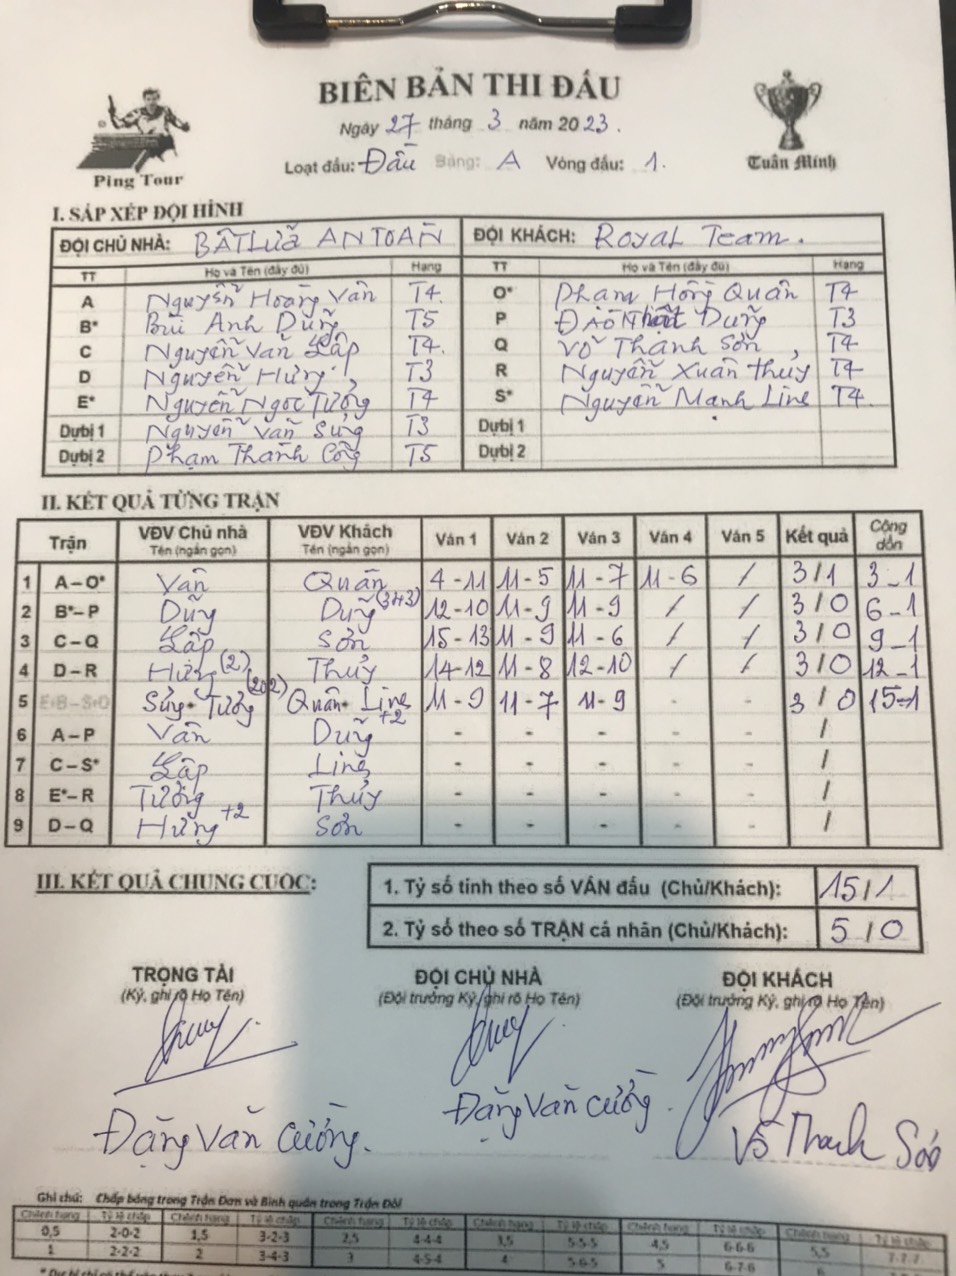 BIÊN BẢN THI ĐẤU
Ngày 27 tháng 3 năm 2023.
Loạt đấu: Đầu Bảng: A Vòng đấu: 1.
Ping Tour
Tuấn Minh
I. SẮP XẾP ĐỘI HÌNH
ĐỘI CHỦ NHÀ: BẬT LỬA AN TOÀN ĐỘI KHÁCH: Royal Team.
TT Họ và Tên (đầy đủ) Hạng TT Họ và Tên (đầy đủ) Hạng
A Nguyễn Hoàng Vân T4 O* Phạm Hồng Quân T4
B* Bùi Anh Dũng T5 P ĐÀO Nhật Dũng T3
C Nguyễn Văn Lập T4. Q Võ Thanh Sơn, T4
D Nguyễn Hưng T3 R Nguyễn Xuân Thủy T4
E* Nguyễn Ngọc Tưởng T4 S* Nguyễn Mạnh Linh T4.
Dự bị 1 Nguyễn Văn Sủng T3 Dự bị 1
Dự bị 2 Phạm Thành Công T5 Dự bị 2
II. KẾT QUẢ TỪNG TRẬN
Trận VĐV Chủ nhà VĐV Khách Ván 1 Ván 2 Ván 3 Ván 4 Ván 5 Kết quả Cộng dồn
Tên (ngắn gọn) Tên (ngắn gọn)
1 A – O* Vân Quân 4 - 11 11 - 5 11 - 7 11 - 6 / 3 / 1 3 - 1
2 B* – P Dũng Dũng (3+3) 12 - 10 11 - 9 11 - 9 / / 3 / 0 6 - 1
3 C – Q Lập Sơn 15 - 13 11 - 9 11 - 6 / / 3 / 0 9 - 1
4 D – R Hưng (2) Thủy 14 - 12 11 - 8 12 - 10 / / 3 / 0 12 - 1
5 E+B – S+O Sủng + Tưởng (202) Quân + Linh 11 - 9 11 - 7 11 - 9 3 / 0 15 - 1
6 A – P Vân Dũng +2 - - - - - /
7 C – S* Lập Linh - - - - - /
8 E* – R Tưởng Thủy - - - - - /
9 D – Q Hưng +2 Sơn - - - - - /
III. KẾT QUẢ CHUNG CUỘC:
1. Tỷ số tính theo số VÁN đấu (Chủ/Khách): 15 / 1
2. Tỷ số theo số TRẬN cá nhân (Chủ/Khách): 5 / 0
TRỌNG TÀI ĐỘI CHỦ NHÀ ĐỘI KHÁCH
(Ký, ghi rõ Họ Tên) (Đội trưởng Ký, ghi rõ Họ Tên) (Đội trưởng Ký, ghi rõ Họ Tên)
Đặng Văn Cường. Đặng Văn Cường. Võ Thanh Sơn
Ghi chú: Chấp bóng trong Trận Đơn và Bình quân trong Trận Đôi
Chênh hạng Tỷ lệ chấp Chênh hạng Tỷ lệ chấp Chênh hạng Tỷ lệ chấp Chênh hạng Tỷ lệ chấp Chênh hạng Tỷ lệ chấp Chênh hạng Tỷ lệ chấp
0,5 2-0-2 1,5 3-2-3 2,5 4-4-4 3,5 5-5-5 4,5 6-6-6 5,5 7-7-7
1 2-2-2 2 3-4-3 3 4-5-4 4 5-6-5 5 6-7-6 6